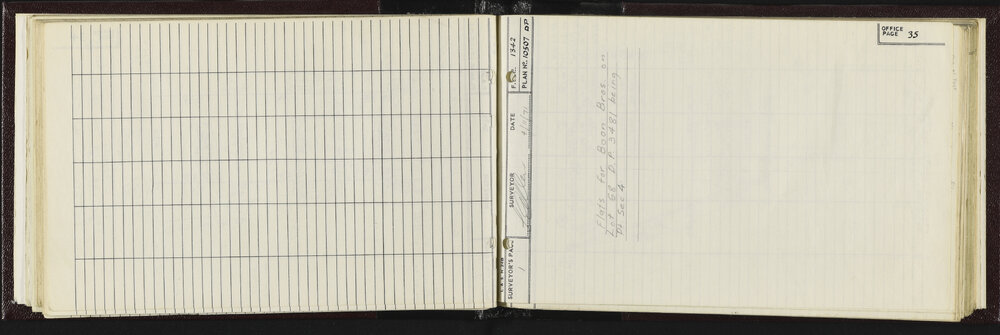 OFFICE
PAGE 35
F.B. No. 1342
PLAN No. 10507 DP
DATE
SURVEYOR
SURVEYOR'S PAGE 1
Flats for Boon Bros on
Lot 68 D.P. 3481 being
in Sec 4